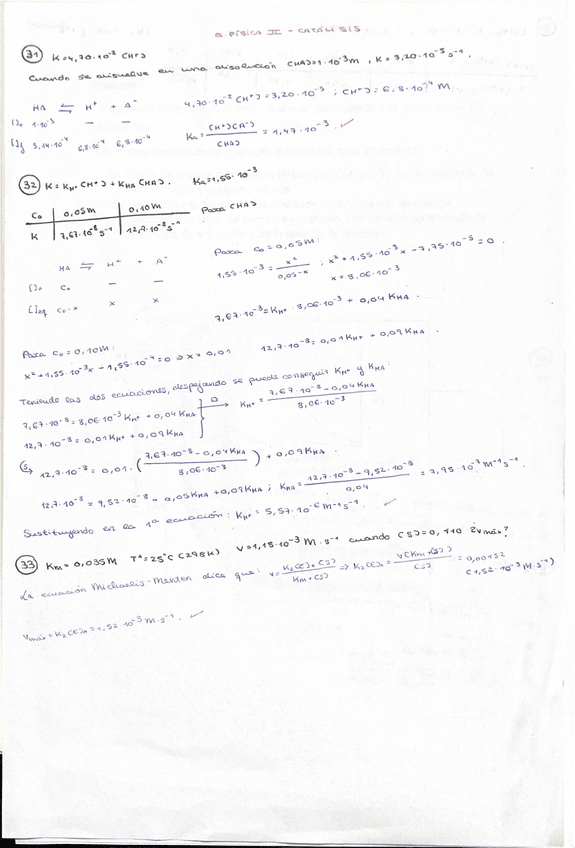 Q. FÍSICA II - CATÁLISIS
31 K=4,70·10⁻² (H⁺)
Cuando se disuelve en una disolución (HA)=1·10⁻³m, K=3,20·10⁻⁵s⁻¹.
HA ⇌ H⁺ + A⁻ 4,70·10⁻²(H⁺)=3,20·10⁻⁵; (H⁺)=6,8·10⁻⁴M.
[]₀ 1·10⁻³ — —
[]f 3,14·10⁻⁴ 6,8·10⁻⁴ 6,8·10⁻⁴ Ka= (H⁺)(A⁻) / (HA) = 1,47·10⁻³ ✓
32 K=KH⁺(H⁺)+KHA(HA). Ka=1,55·10⁻³
C₀ 0,05M 0,10M Para (HA)
K 7,67·10⁻⁸s⁻¹ 12,7·10⁻⁸s⁻¹
Para C₀=0,05M:
HA ⇌ H⁺ + A⁻ 1,55·10⁻³= x² / 0,05-x ; x²+1,55·10⁻³x-7,75·10⁻⁵=0.
[]₀ C₀ — — x=8,06·10⁻³
[]eq C₀-x x x 7,67·10⁻⁸=KH⁺·8,06·10⁻³+0,04KHA
Para C₀=0,10M:
x²+1,55·10⁻³x-1,55·10⁻⁴=0⇒x=0,01 12,7·10⁻⁸=0,01KH⁺+0,09KHA.
Teniendo las dos ecuaciones, despejando se puede conseguir KH⁺ y KHA:
7,67·10⁻⁸=8,06·10⁻³KH⁺+0,04KHA → KH⁺= 7,67·10⁻⁸-0,04KHA / 8,06·10⁻³
12,7·10⁻⁸=0,01KH⁺+0,09KHA
12,7·10⁻⁸=0,01·( 7,67·10⁻⁸-0,04KHA / 8,06·10⁻³ )+0,09KHA.
12,7·10⁻⁸=9,52·10⁻⁸-0,05KHA+0,09KHA; KHA= 12,7·10⁻⁸-9,52·10⁻⁸ / 0,04 =7,95·10⁻⁷M⁻¹s⁻¹.
Sustituyendo en la 1ª ecuación: KH⁺=5,57·10⁻⁶M⁻¹s⁻¹. ✓
33 Km=0,035M Tª=25ºC(298K) V=1,15·10⁻³M·s⁻¹ cuando (S)=0,110 ¿vmáx?
La ecuación Michaelis-Menten dice que: v= K₂(E)₀(S) / Km+(S) ⇒K₂(E)₀= v(Km+(S)) / (S) =0,00152
(1,52·10⁻³M·s⁻¹)
Vmáx=K₂(E)₀=1,52·10⁻³M·s⁻¹. ✓